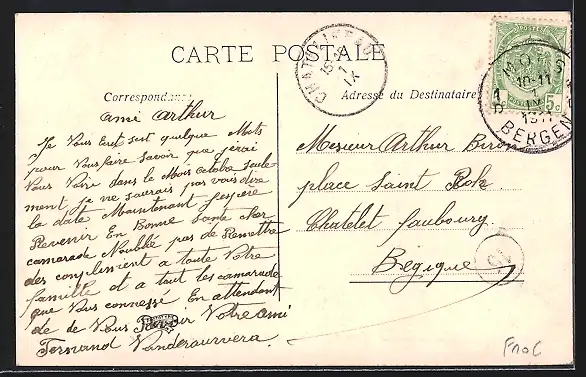 CARTE POSTALE
Correspondance
Adresse du Destinataire
ami Arthur
Je Vous Ecrit sest quelque Mots
pour Vous faire Savoir que jerai
Vous Voire dans le Mois Octobe Seule
ment Je ne Saurais pas vous dire
la date Maintenant Jespère
Revenir En Bonne Santé cher
camarade Noublié pas de Remettre
des compliment a toute Votre
famille et a tout les camarade
que Vous connesse En attendant
de de Vous Voir Votre ami
Fernand Vanderauwera
Mesieur Arthur Biron
place Saint Rok
Chatelet faubourg
Bégique
CHATELINEAU
15-16
1
IX
MONS
10-11
1
IX
1911
BERGEN
5c
Fnoc